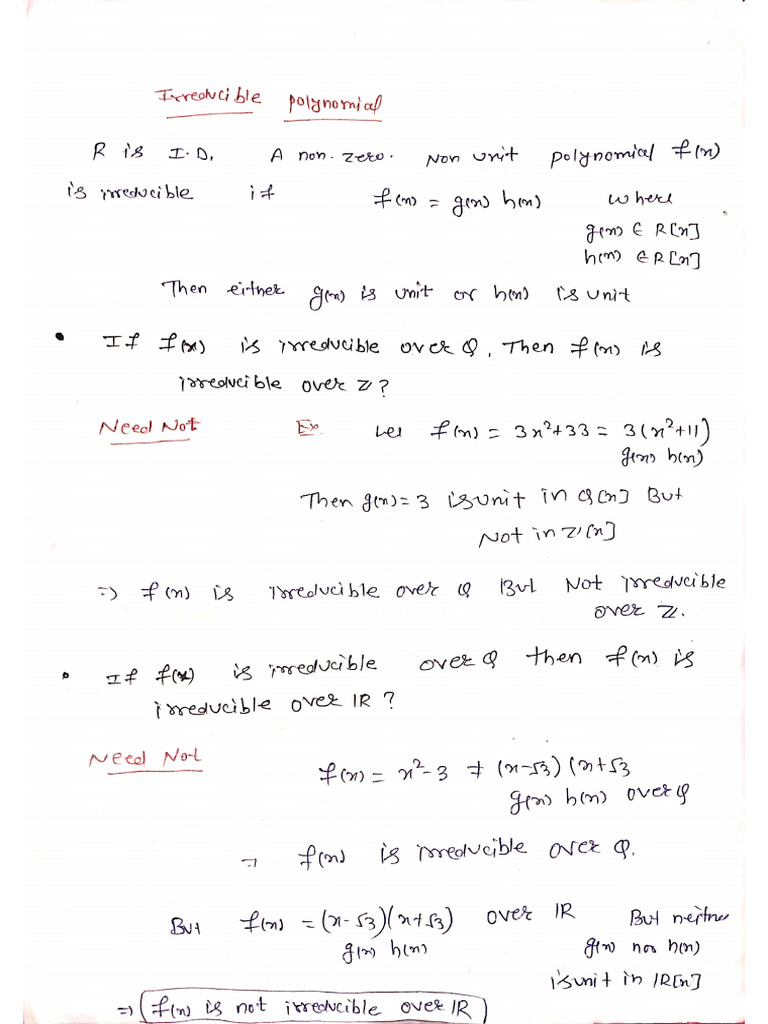 Irreducible polynomial
R is I.D. A non-zero. Non unit polynomial f(x)
is irreducible if f(x) = g(x) h(x) where
g(x) ∈ R[x]
h(x) ∈ R[x]
Then either g(x) is unit or h(x) is unit
• If f(x) is irreducible over Q, Then f(x) is
irreducible over Z?
Need Not Ex. Let f(x) = 3x²+33 = 3(x²+11)
g(x) h(x)
Then g(x) = 3 is unit in Q[x] But
Not in Z[x]
=> f(x) is irreducible over Q But Not irreducible
over Z.
• If f(x) is irreducible over Q then f(x) is
irreducible over IR ?
Need Not
f(x) = x²-3 ≠ (x-√3) (x+√3
g(x) h(x) over Q
=> f(x) is irreducible over Q.
But f(x) = (x-√3)(x+√3) over IR But neither
g(x) h(x) g(x) nor h(x)
is unit in IR[x]
=> f(x) is not irreducible over IR